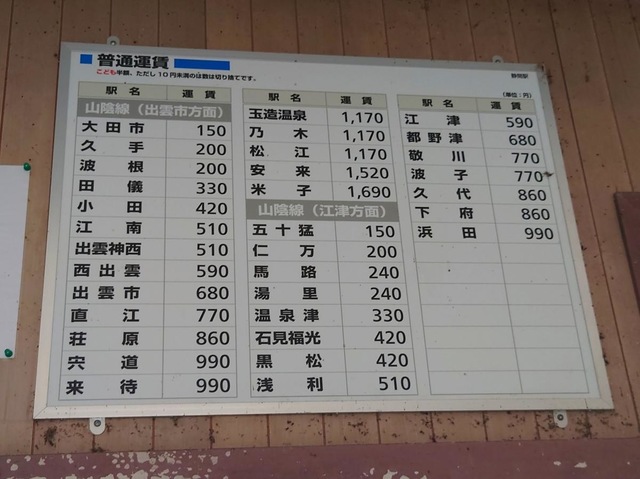 普通運賃
こども半額。ただし10円未満のは数は切り捨てです。
静間駅
(単位:円)
駅名 運賃
山陰線(出雲市方面)
大田市 150
久手 200
波根 200
田儀 330
小田 420
江南 510
出雲神西 510
西出雲 590
出雲市 680
直江 770
荘原 860
宍道 990
来待 990
駅名 運賃
玉造温泉 1,170
乃木 1,170
松江 1,170
安来 1,520
米子 1,690
山陰線(江津方面)
五十猛 150
仁万 200
馬路 240
湯里 240
温泉津 330
石見福光 420
黒松 420
浅利 510
駅名 運賃
江津 590
都野津 680
敬川 770
波子 770
久代 860
下府 860
浜田 990